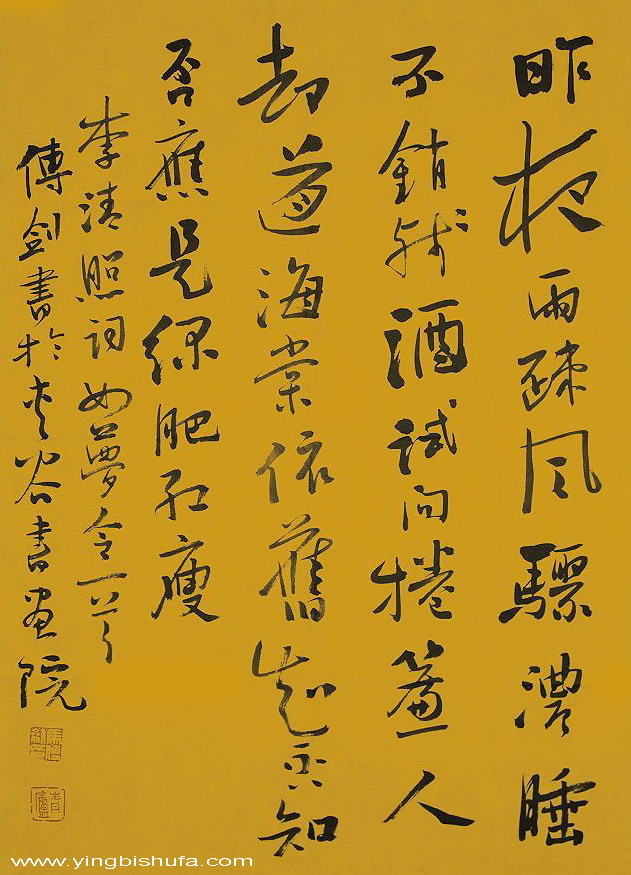 昨夜雨疎風驟濃睡
不銷殘酒試问捲簾人
却道海棠依舊知否知
否應是綠肥紅瘦
李清照詞如夢令一首
傅劍書於谷書画院
www.yingbishufa.com